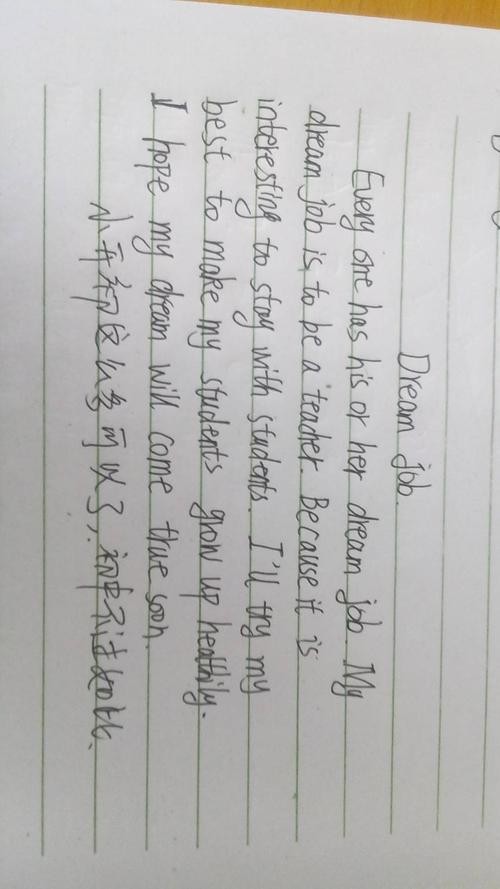 Dream job.
Every one has his or her dream job. My
dream job is to be a teacher. Because it is
interesting to stay with students. I'll try my
best to make my students grow up heathily.
I hope my dream will come true soon.
小升初这么多可以了,初中不过如此.